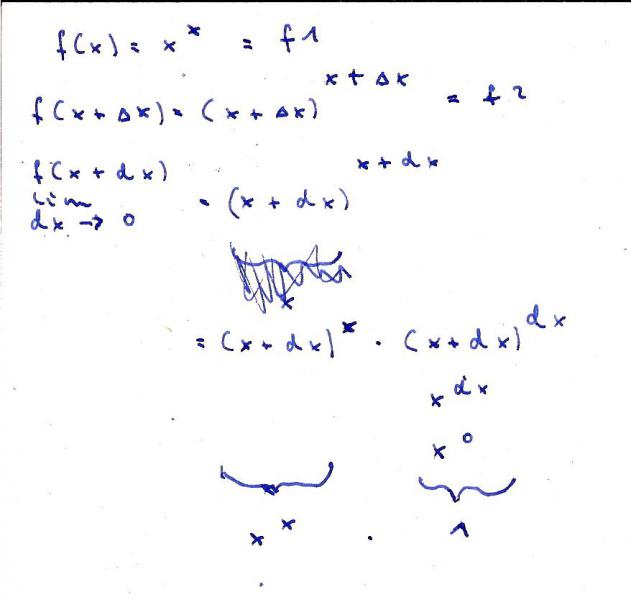 f(x) = x^x = f1
f(x + Δx) = (x + Δx)^(x + Δx) = f2
f(x + dx) = (x + dx)^(x + dx)
lim
dx → 0
= (x + dx)^x · (x + dx)^dx
x^dx
x^0
x^x · 1